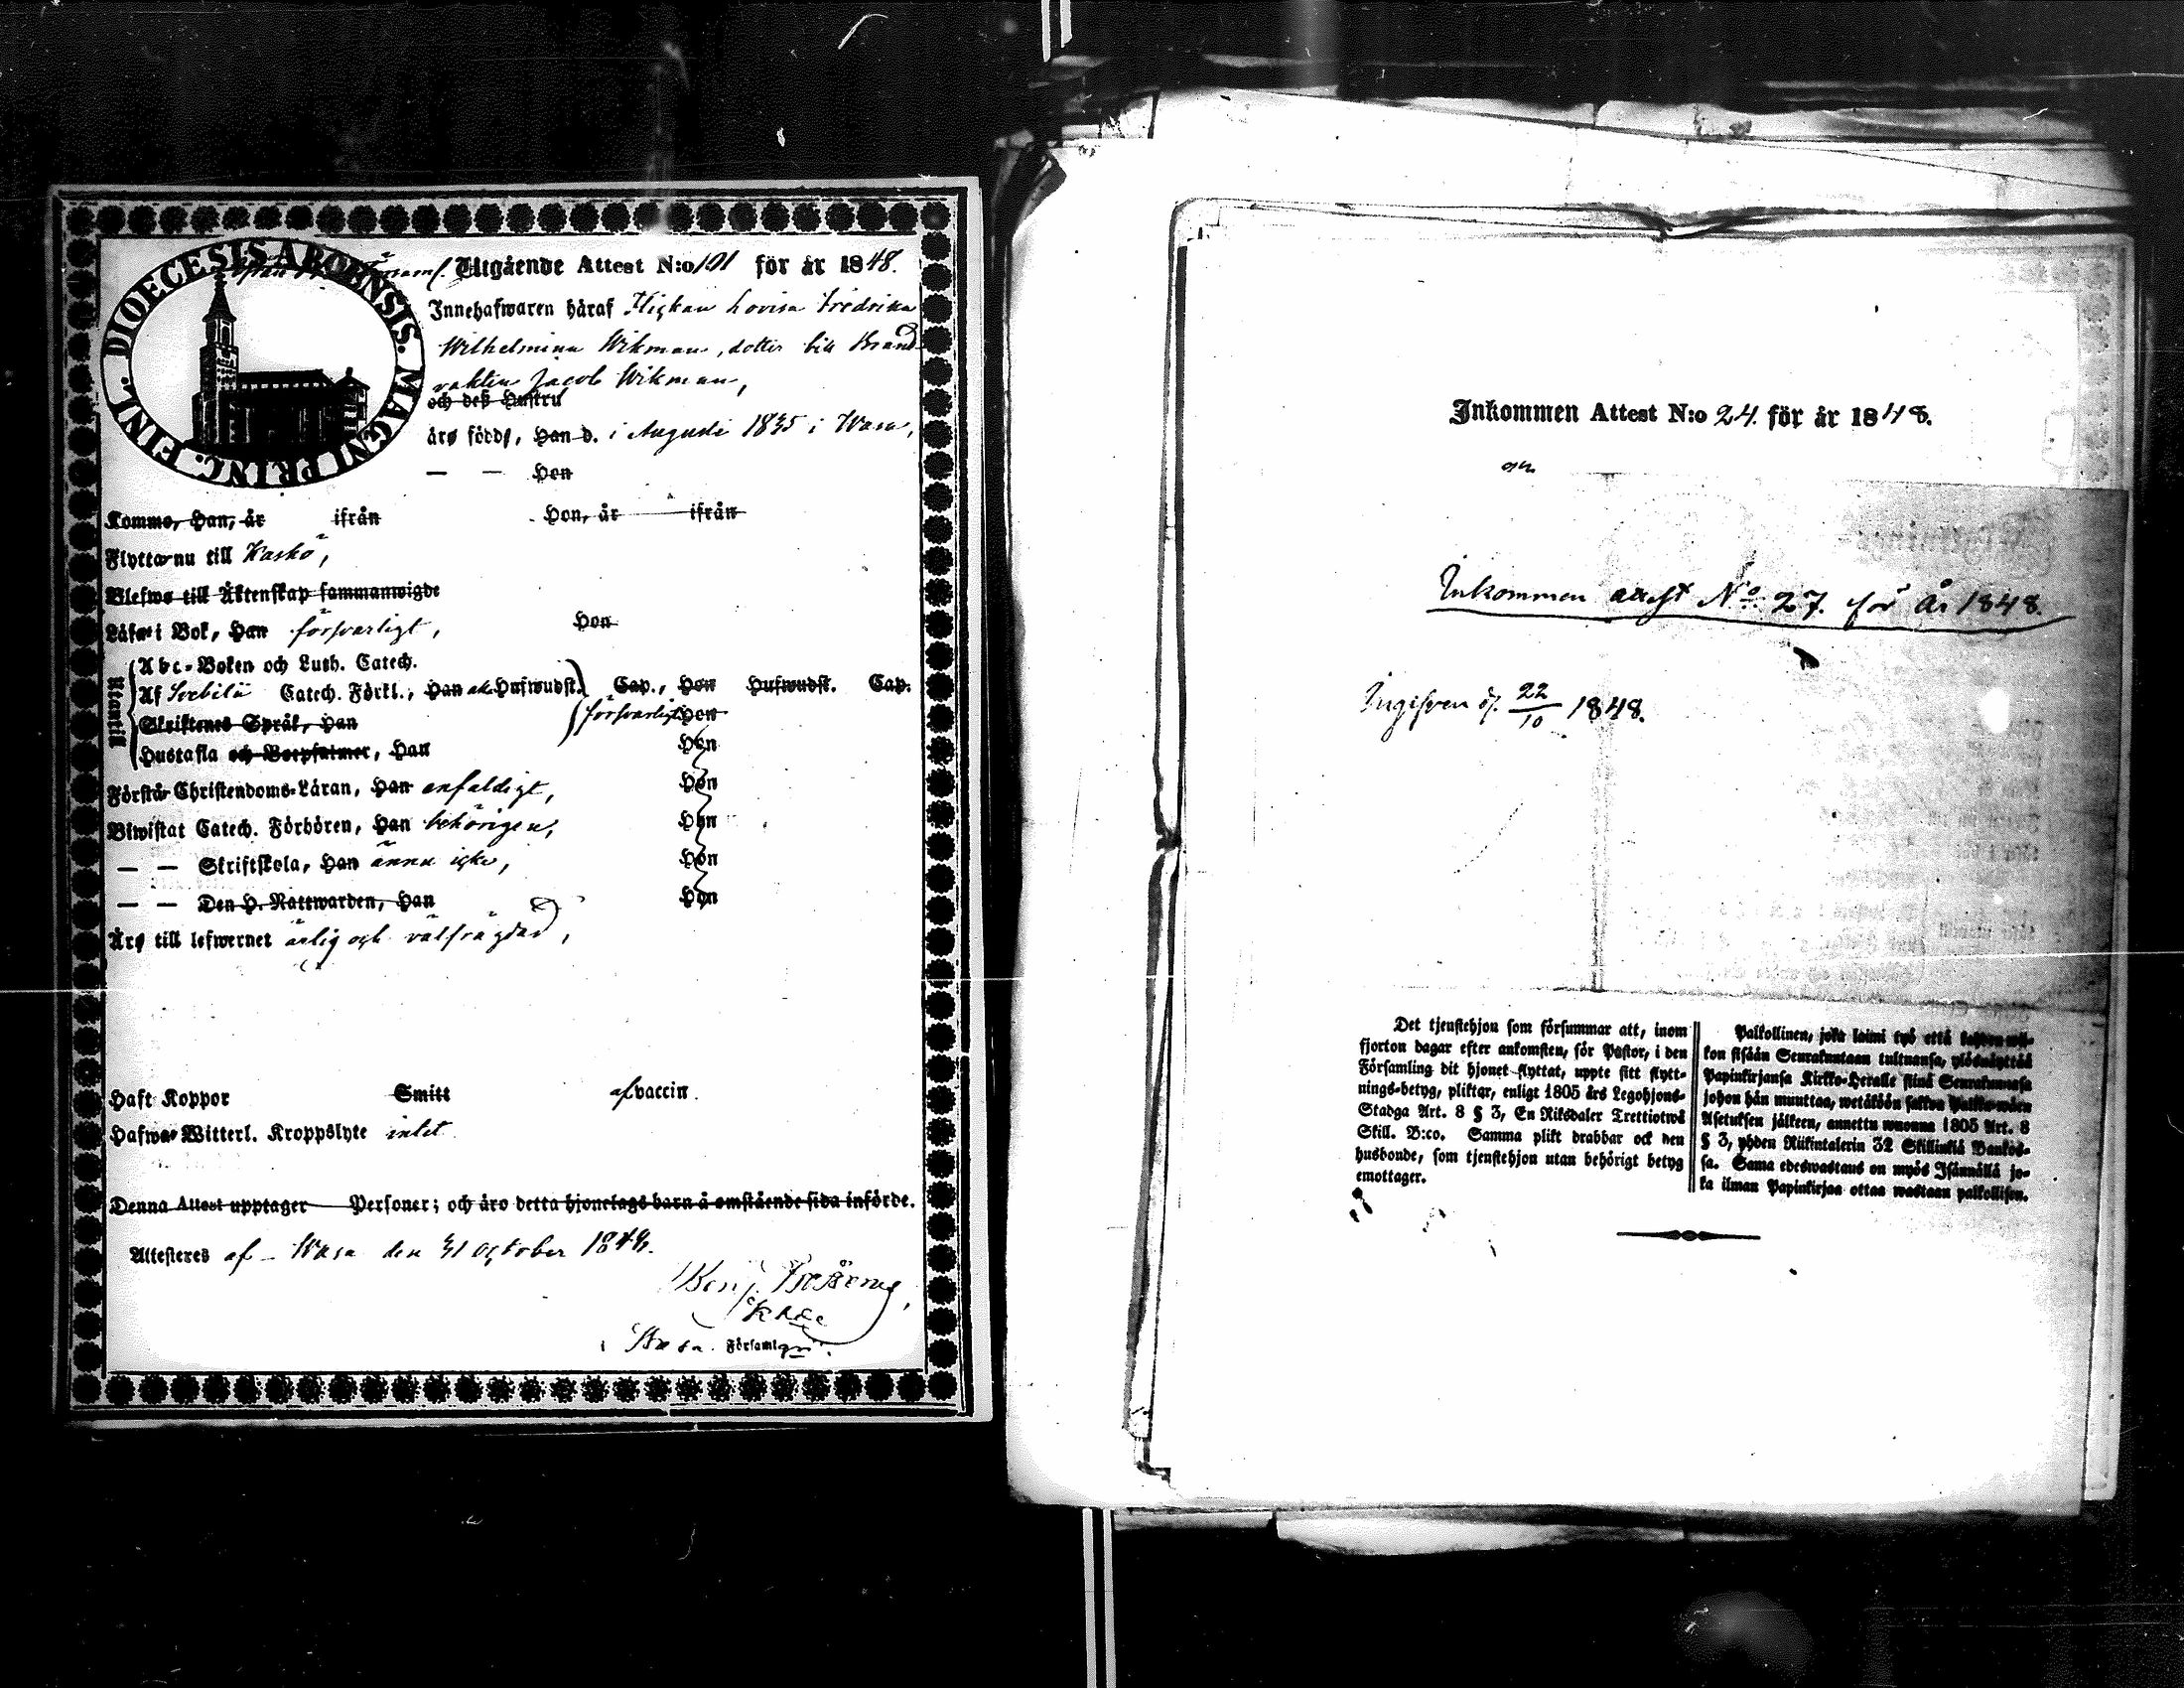 DIOECESIS ABOENSIS. MAGNI PRINC. FINL.
Utgående Attest N:o 101 för år 1848.
Innehafwaren håraf Flickan Lovisa Fredrika
Wilhelmina Wikman, dotter till Brand-
vakten Jacob Wikman,
och deß Hustru
äro födde, Han d. i Augusti 1835 i Wasa,
— — Hon
Kommo, Han, år ifrån Hon, år ifrån
Flytta nu till Kaskö,
Blefwo till Äktenskap sammanwigde
Läsa i Bok, Han försvarligt, Hon
Utantill
Abc-Boken och Luth. Catech.
Af Svebilii Catech. Förkl., Han Hufwudst. Cap., Hon Hufwudst. Cap.
Skriftenes Språk, Han försvarligt Hon
Hustafla och Botpsalmer, Han Hon
Förstår Christendoms-Läran, Han enfaldigt, Hon
Biwistat Catech. Förhören, Han behörigen, Hon
— — Skriftskola, Han ännu icke, Hon
— — Den H. Nattwarden, Han Hon
Äro till lefwernet ärlig och välfrägdad,
Haft Koppor Smitt af vaccin.
Hafwa Witterl. Kroppslyte intet
Denna Attest upptager Personer; och äro detta hjonelags barn å omstående sida införde.
Attesteres af Wasa den 31 October 1848.
Benj.
i Wasa Församlgn.
Inkommen Attest N:o 24. för år 1848.
Inkommen attest No. 27. för år 1848.
Ingifven d. 22/10 1848.
Det tjenstehjon som försummar att, inom
fjorton dagar efter ankomsten, för Pastor, i den
Församling dit hjonet flyttat, uppte sitt flytt-
nings-betyg, pliktar, enligt 1805 års Legohjons-
Stadga Art. 8 § 3, En Riksdaler Trettiotwå
Skill. B:co. Samma plikt drabbar ock den
husbonde, som tjenstehjon utan behörigt betyg
emottager.
Palkollinen, joka laimi lyö että kahden wii-
kon sisään Seurakuntaan tultuansa, ylösnäyttää
Papinkirjansa Kirkko-Herralle siinä Seurakunnasa
johon hän muuttaa, wetäköön sakkoa Palkko-wäen
Asetuksen jälkeen, annettu wuonna 1805 Art. 8
§ 3, yhden Riikintalerin 32 Skillinkiä Bankos-
sa. Sama edeswastaus on myös Isännällä jo-
ka ilman Papinkirjaa ottaa wastaan palkollisen.